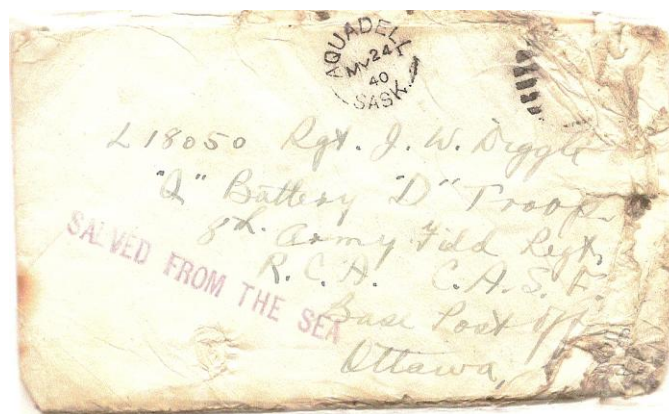 AQUADELL
MY 24
40
SASK.
L 18050 Rgt. J. W. Diggle
"Q" Battery "D" Troop
8th. Army Field Regt,
R.C.A. C.A.S.F.
Base Post Off
Ottawa,
SALVED FROM THE SEA